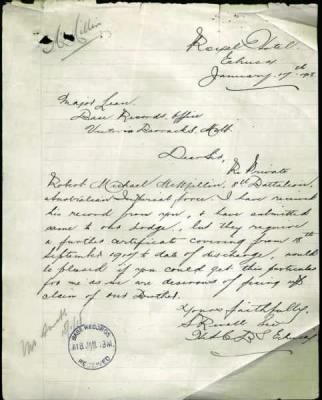 McMillin
Royal Hotel
Echuca
January 17th
Major Lean
Base Records Office
Victoria Barracks Melb.
Dear Sir,
Re Private
Robert Michael McMillin, 8th Battalion,
Australian Imperial force. I have received
his record from you, & have submitted
same to our Lodge, but they require
a further certificate covering from 18th
September 1917 to date of discharge, would
be pleased if you could get this particulars
for me as we are desirous of fixing up
claim of our Brother.
Yours faithfully
S Russell Sec
Echuca
BASE RECORDS
18 JAN
RECEIVED